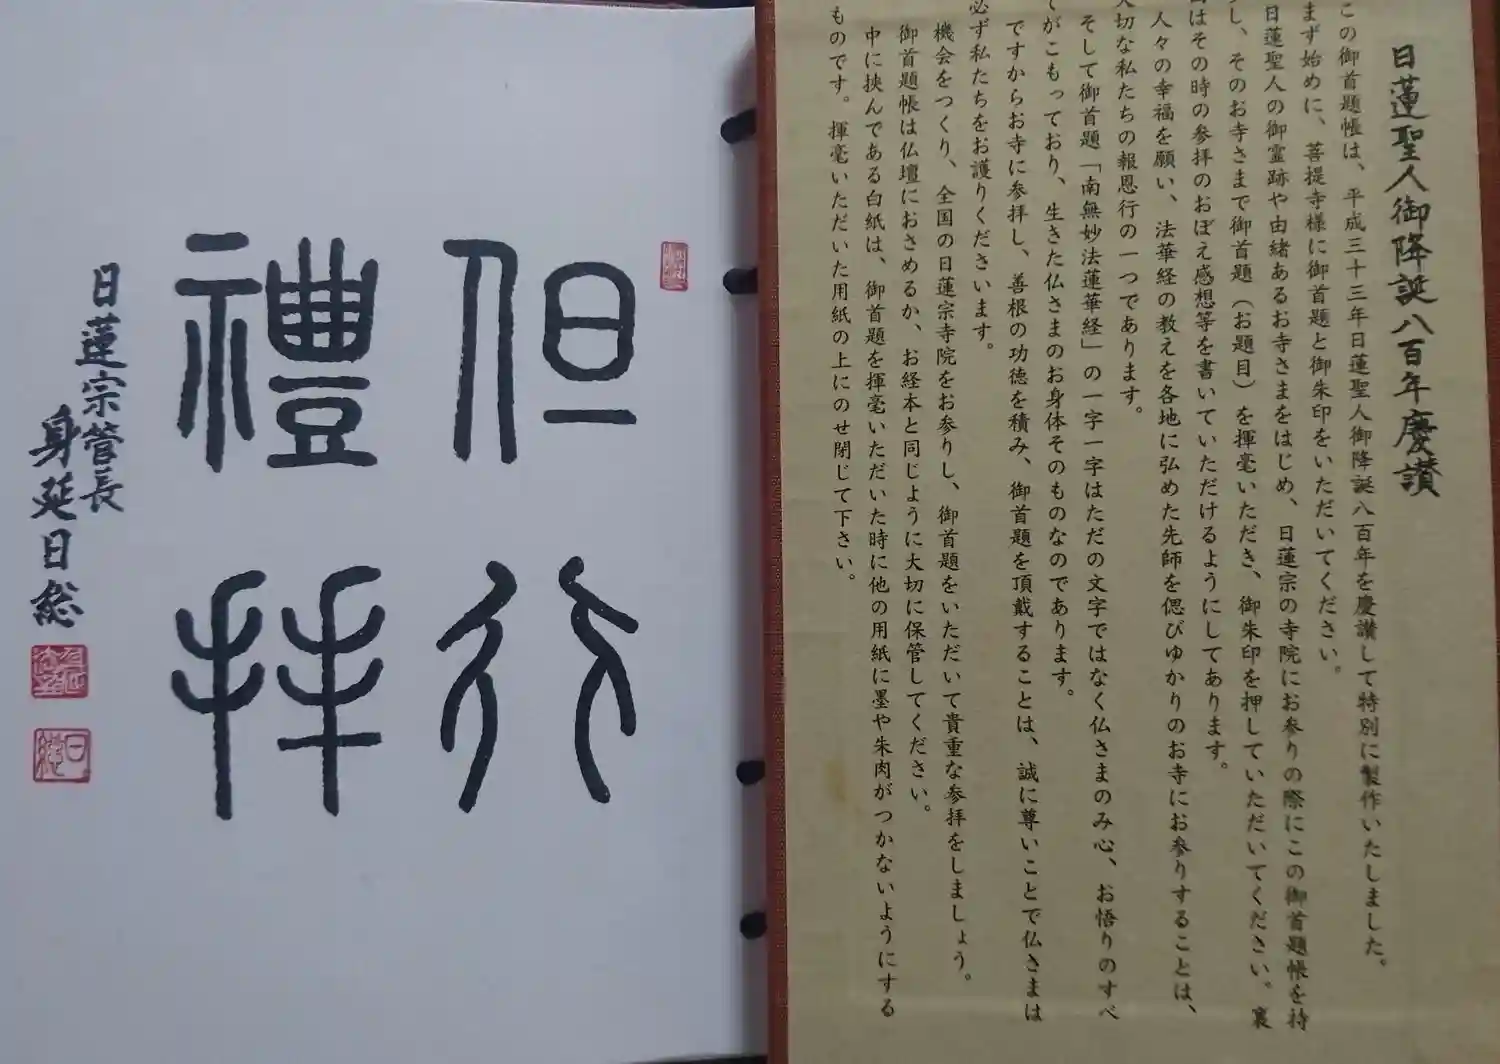 日蓮聖人御降誕八百年慶讃
この御首題帳は、平成三十三年日蓮聖人御降誕八百年を慶讃して特別に製作いたしました。
まず始めに、菩提寺様に御首題と御朱印をいただいてください。
日蓮聖人の御霊跡や由緒あるお寺さまをはじめ、日蓮宗の寺院にお参りの際にこの御首題帳を持
し、そのお寺さまで御首題（お題目）を揮毫いただき、御朱印を押していただいてください。裏
はその時の参拝のおぼえ感想等を書いていただけるようにしてあります。
人々の幸福を願い、法華経の教えを各地に弘めた先師を偲びゆかりのお寺にお参りすることは、
大切な私たちの報恩行の一つであります。
そして御首題「南無妙法蓮華経」の一字一字はただの文字ではなく仏さまのみ心、お悟りのすべ
てがこもっており、生きた仏さまのお身体そのものなのであります。
ですからお寺に参拝し、善根の功徳を積み、御首題を頂戴することは、誠に尊いことで仏さまは
必ず私たちをお護りくださいます。
機会をつくり、全国の日蓮宗寺院をお参りし、御首題をいただいて貴重な参拝をしましょう。
御首題帳は仏壇におさめるか、お経本と同じように大切に保管してください。
中に挟んである白紙は、御首題を揮毫いただいた時に他の用紙に墨や朱肉がつかないようにする
ものです。揮毫いただいた用紙の上にのせ閉じて下さい。
但行
禮拝
日蓮宗管長
身延日総